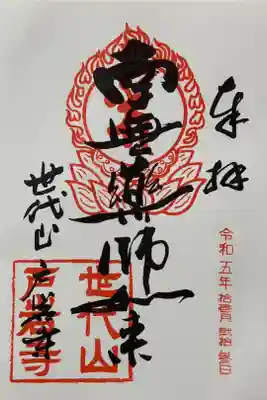 奉拝
令和五年拾壹月貳拾參日
南無薬師如来
世代山
世代山